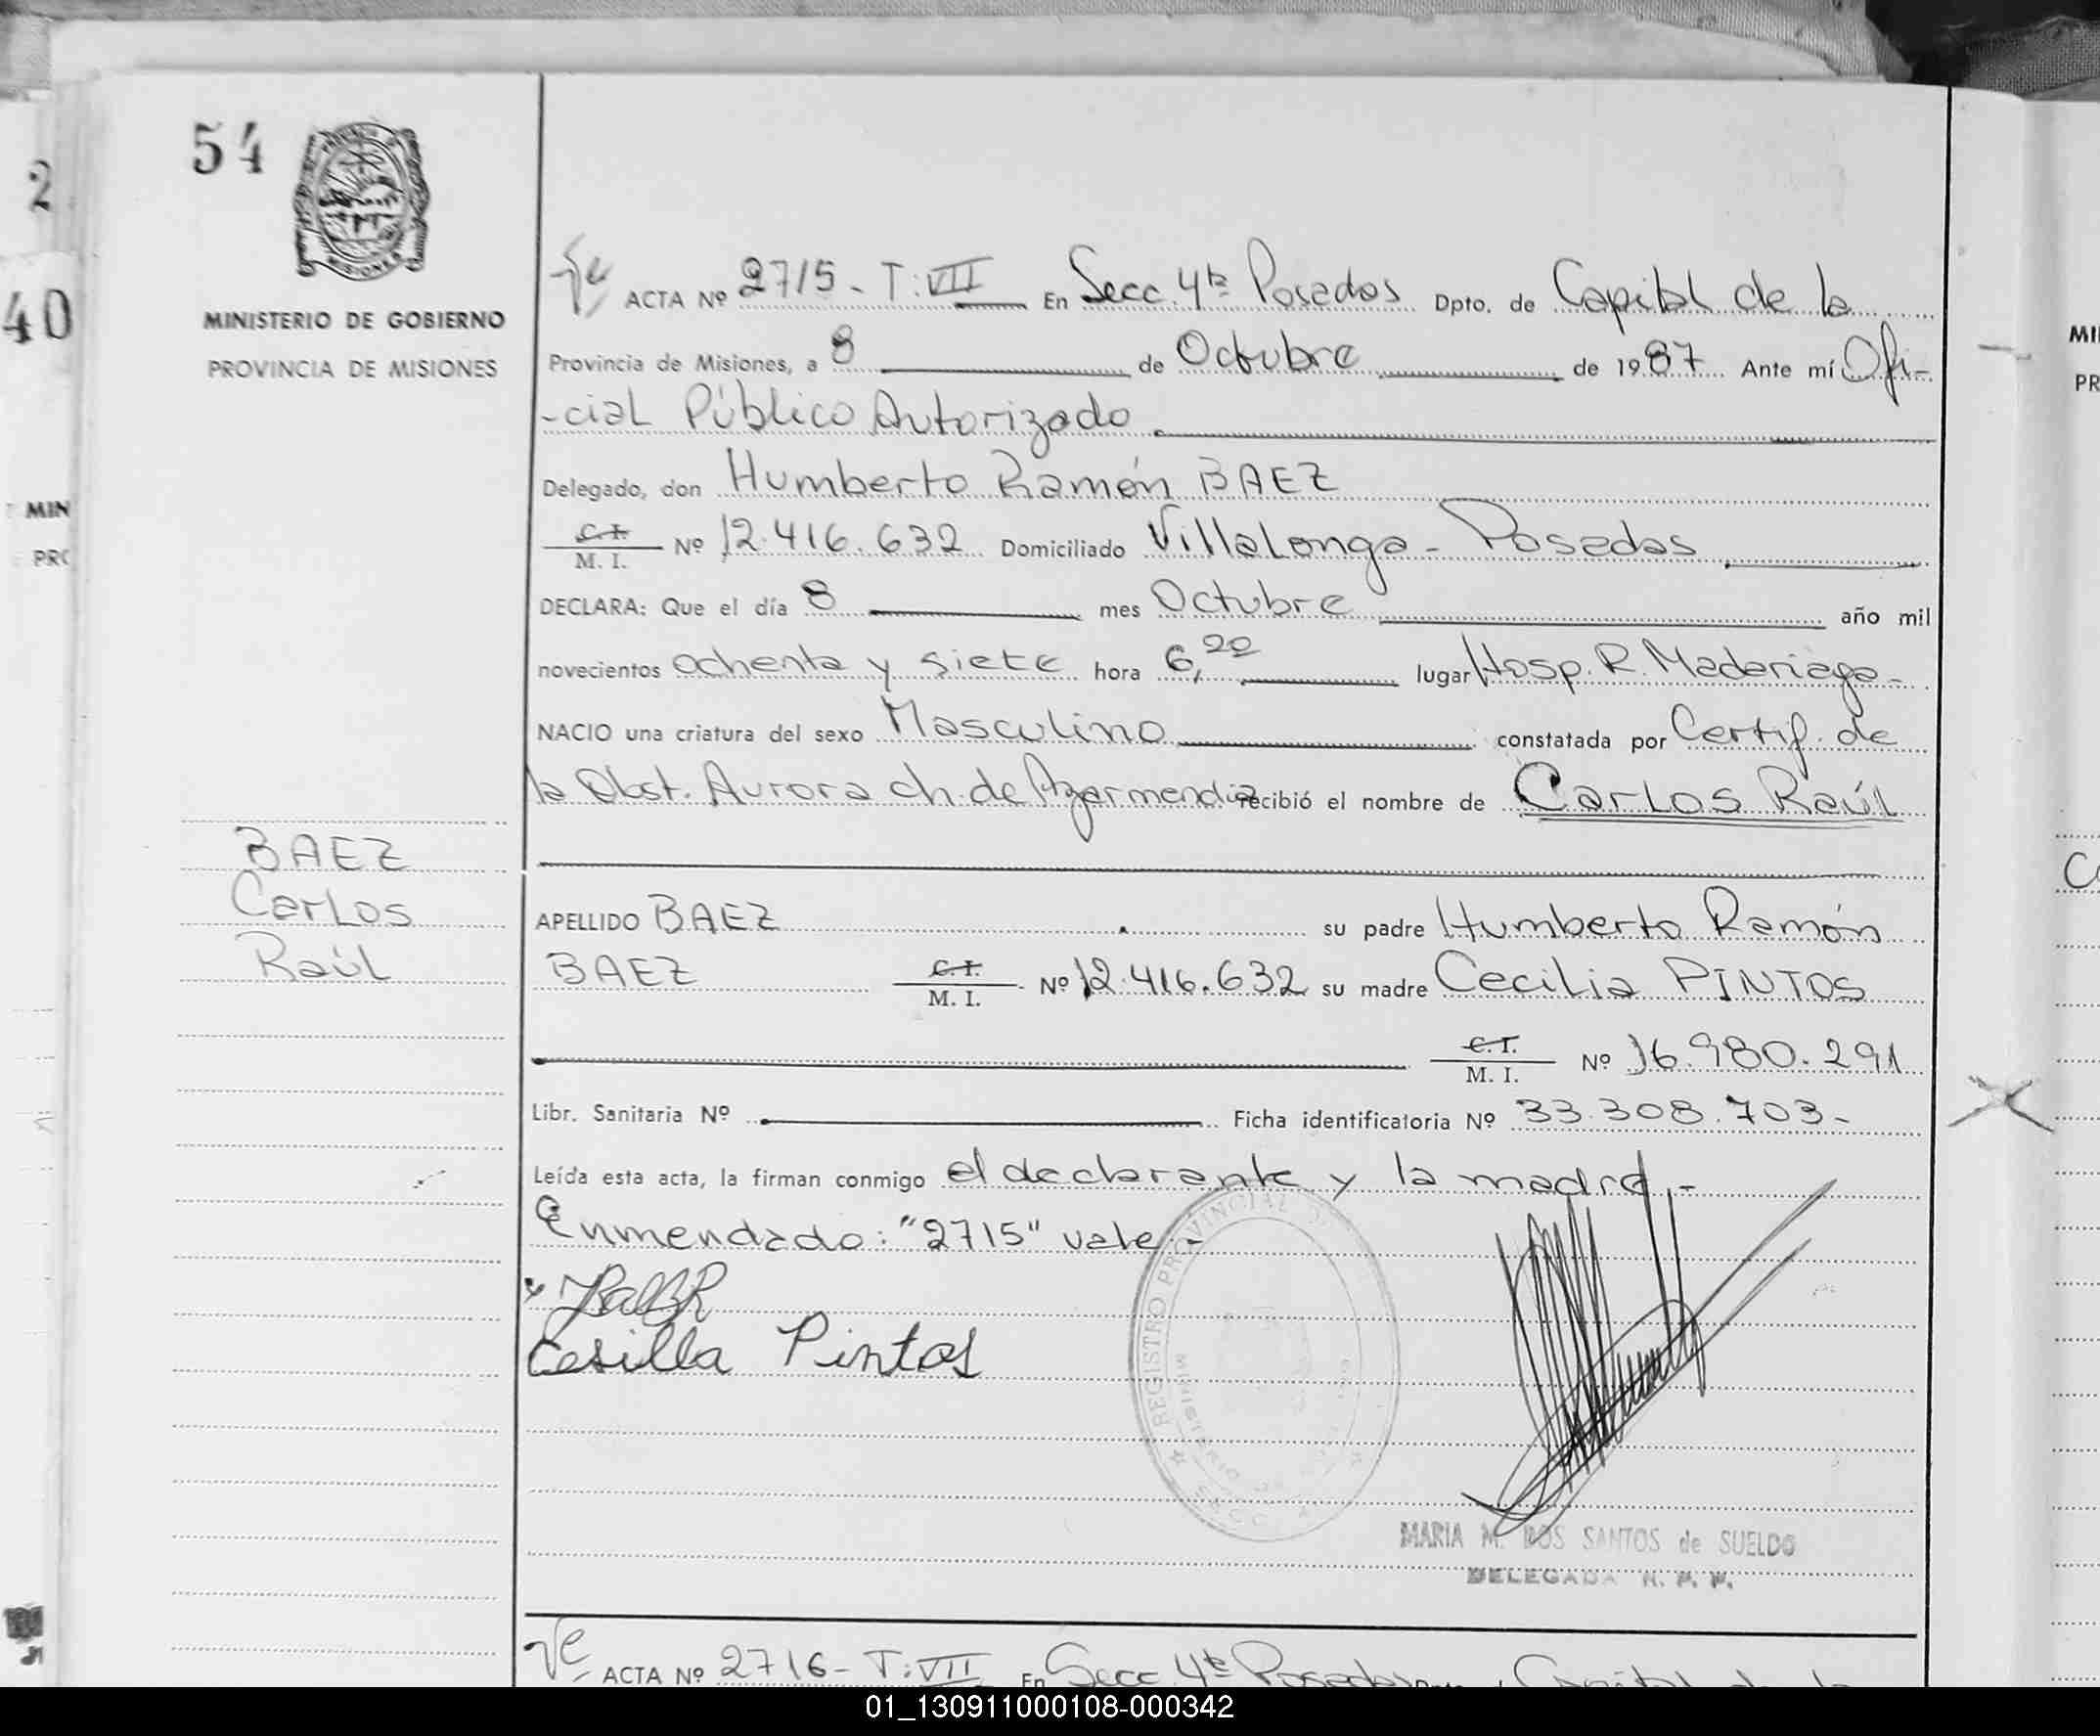 54
2
40
MINISTERIO DE GOBIERNO
PROVINCIA DE MISIONES
MIN
PRO
ACTA Nº 2715 - T: VII En Secc. 4ta Posadas Dpto. de Capital de la
Provincia de Misiones, a 8 de Octubre de 1987 Ante mí Ofi-
-cial Público Autorizado.
Delegado, don Humberto Ramón BAEZ
C. I.
M. I. Nº 12.416.632 Domiciliado Villalonga - Posadas
DECLARA: Que el día 8 mes Octubre año mil
novecientos ochenta y siete hora 6,20 lugar Hosp. R. Madariaga -
NACIO una criatura del sexo Masculino constatada por Certif. de
la Obst. Aurora Ch. de Azarmendia recibió el nombre de Carlos Raúl
BAEZ
Carlos
Raúl
APELLIDO BAEZ su padre Humberto Ramón
BAEZ C. I.
M. I. Nº 12.416.632 su madre Cecilia PINTOS
C. I.
M. I. Nº 16.980.291
Libr. Sanitaria Nº Ficha identificatoria Nº 33.308.703-
Leída esta acta, la firman conmigo el declarante y la madre.-
Enmendado: "2715" vale.-
Cesilla Pintos
REGISTRO PROVINCIAL
MARIA M. DOS SANTOS de SUELDO
DELEGADA R. P. P.
ACTA Nº 2716 - T: VII En Secc 4ta Posadas Capital de la
01_130911000108-000342